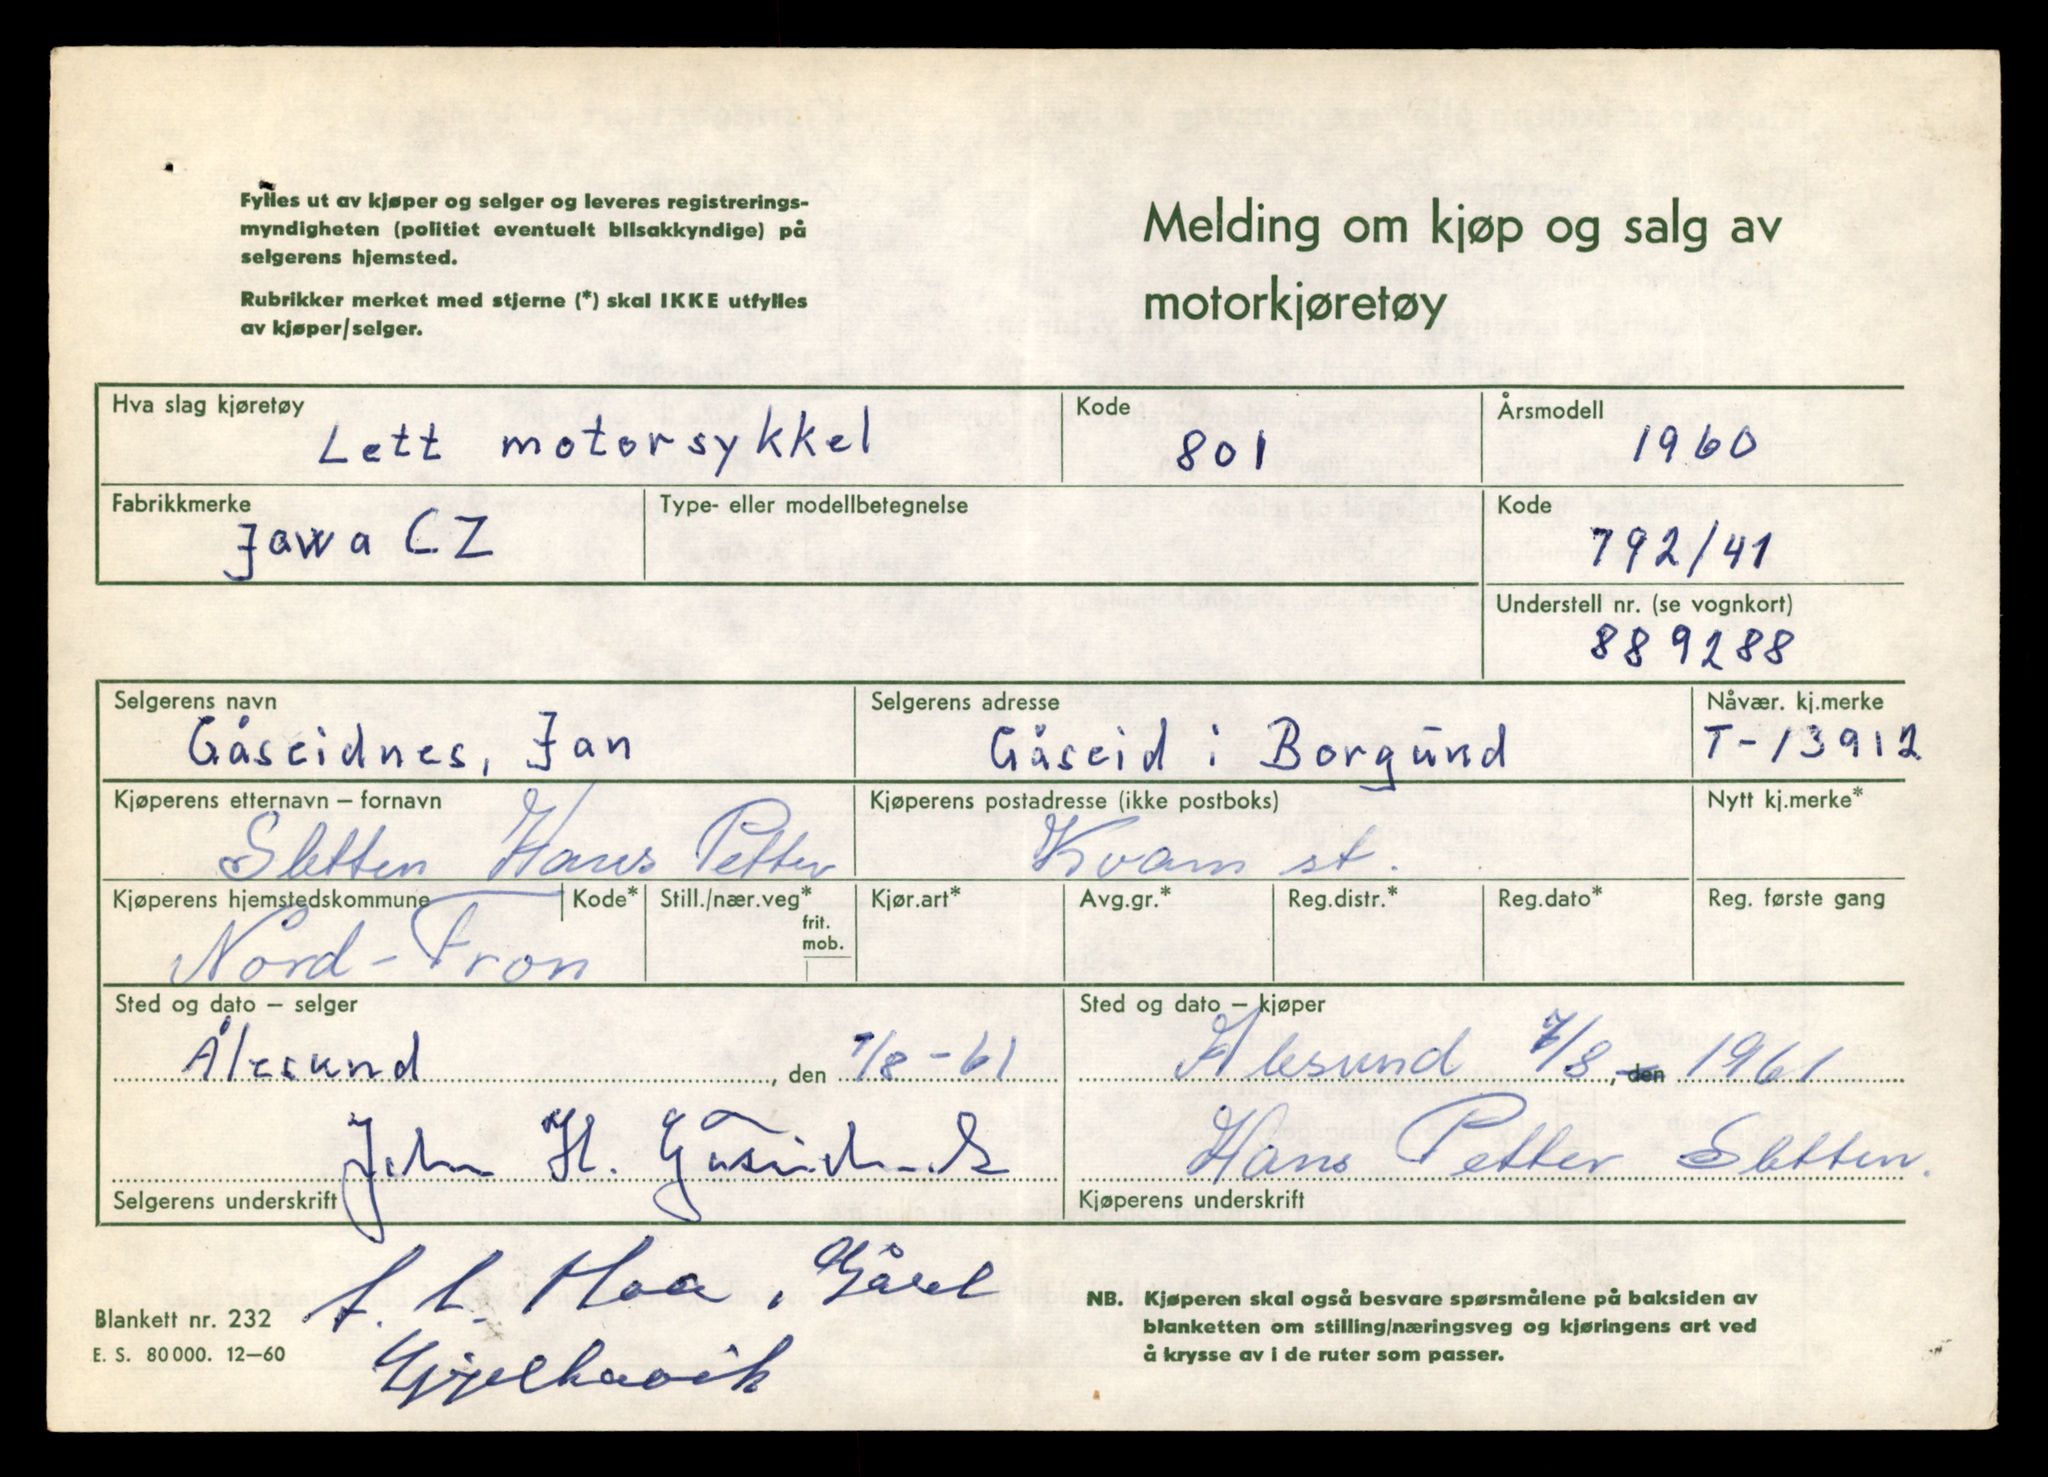 Fylles ut av kjøper og selger og leveres registrerings-
myndigheten (politiet eventuelt bilsakkyndige) på
selgerens hjemsted.
Rubrikker merket med stjerne (*) skal IKKE utfylles
av kjøper/selger.
Melding om kjøp og salg av
motorkjøretøy
Hva slag kjøretøy
Lett motorsykkel
Kode
801
Årsmodell
1960
Fabrikkmerke
Jawa CZ
Type- eller modellbetegnelse
Kode
792/41
Understell nr. (se vognkort)
889288
Selgerens navn
Gåseidnes, Jan
Selgerens adresse
Gåseid i Borgund
Nåvær. kj.merke
T-13912
Kjøperens etternavn – fornavn
Sletten Hans Petter
Kjøperens postadresse (ikke postboks)
Kvam st.
Nytt kj.merke*
Kjøperens hjemstedskommune
Nord-Fron
Kode*
Still./nær.veg*
frit.
mob.
Kjør.art*
Avg.gr.*
Reg.distr.*
Reg.dato*
Reg. første gang
Sted og dato – selger
Ålesund, den 7/8-61
Sted og dato – kjøper
Ålesund 7/8, den 1961
John H.
Selgerens underskrift
Hans Petter Sletten.
Kjøperens underskrift
Moa,
Blankett nr. 232
E. S. 80 000. 12–60
NB. Kjøperen skal også besvare spørsmålene på baksiden av
blanketten om stilling/næringsveg og kjøringens art ved
å krysse av i de ruter som passer.